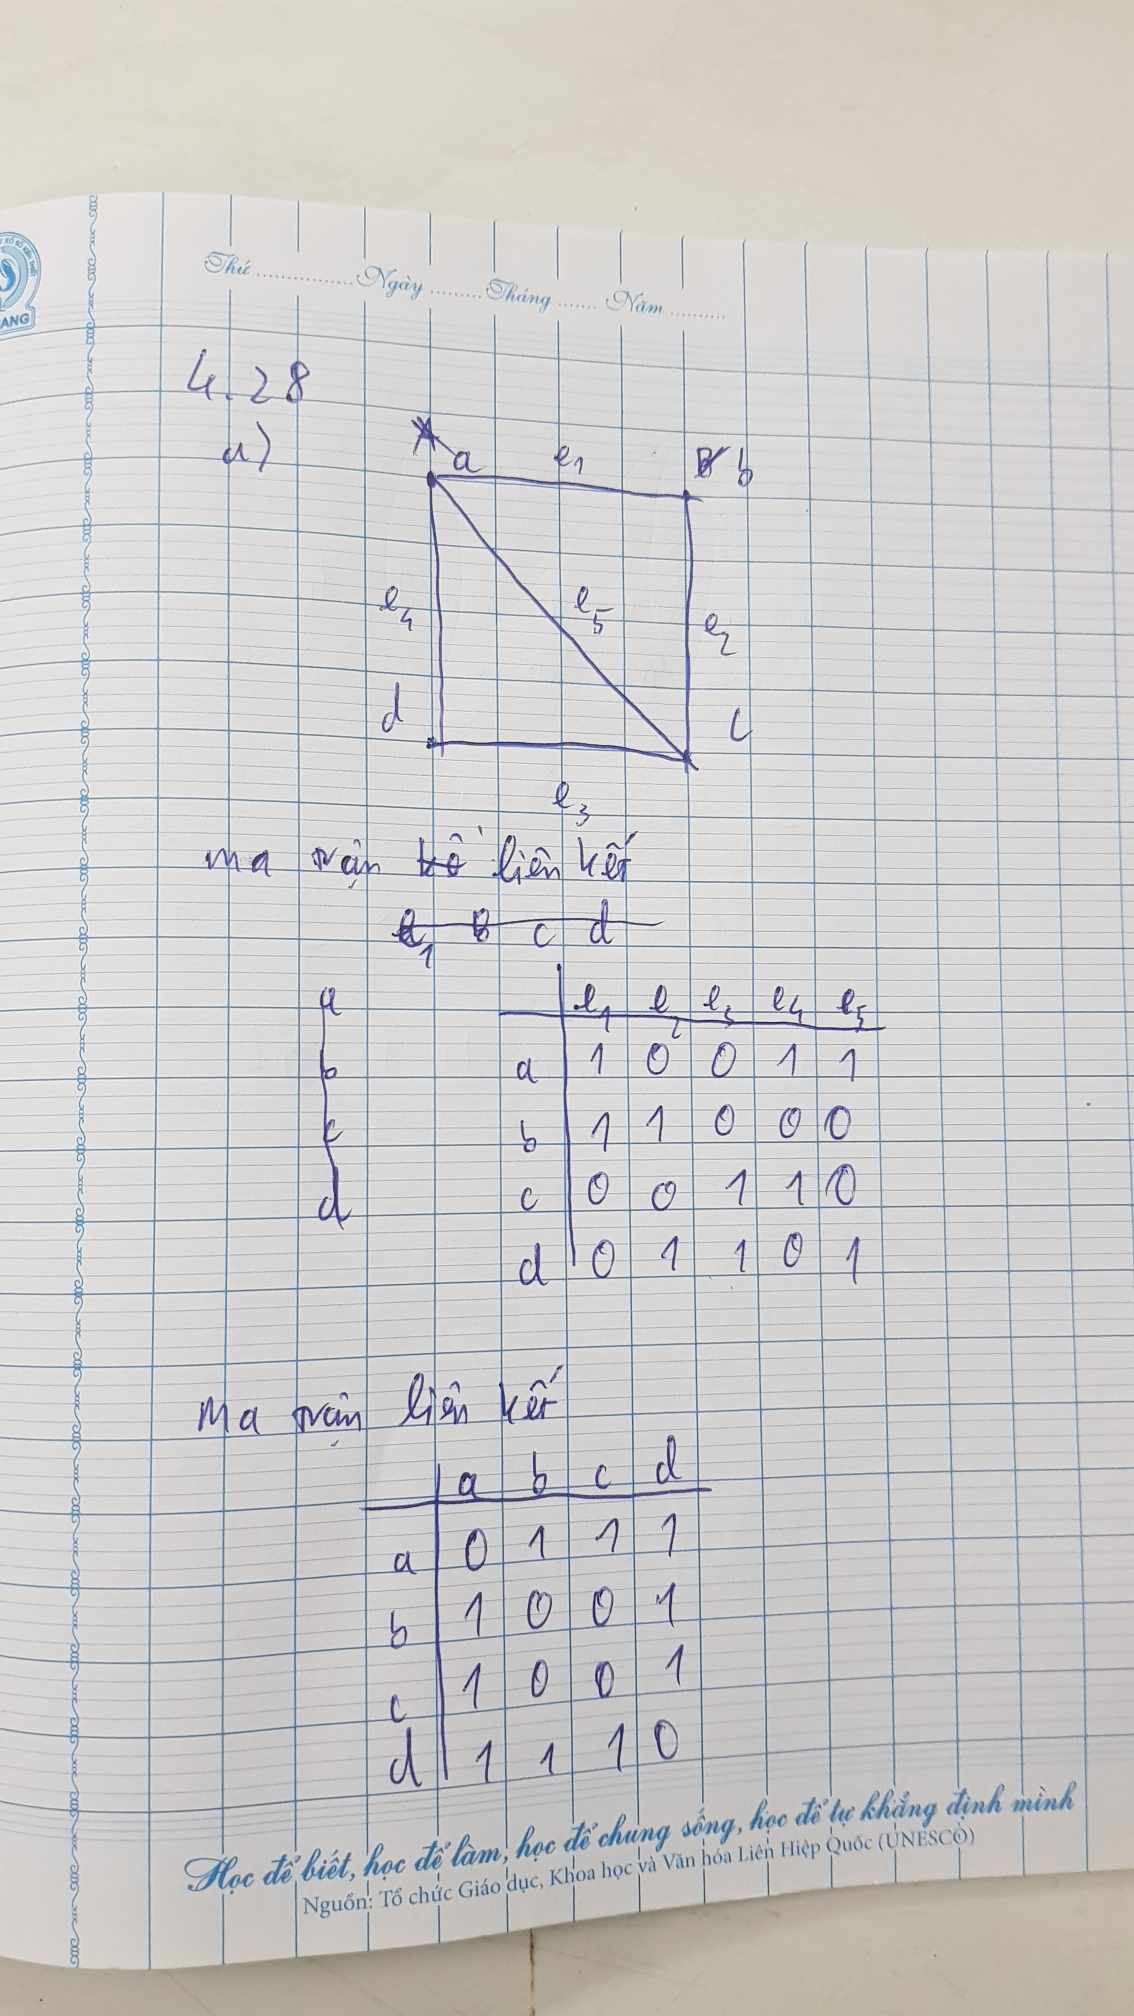 ANG
Thứ ............... Ngày ......... Tháng ....... Năm ..........
4.28
a)
A
a e1 B b
e4 e5 e2
d c
e3
ma trận kề liên kết
e1 b c d
a
b
c
d
e1 e2 e3 e4 e5
a 1 0 0 1 1
b 1 1 0 0 0
c 0 0 1 1 0
d 0 1 1 0 1
Ma trận liên kết
a b c d
a 0 1 1 1
b 1 0 0 1
c 1 0 0 1
d 1 1 1 0
Học để biết, học để làm, học để chung sống, học để tự khẳng định mình
Nguồn: Tổ chức Giáo dục, Khoa học và Văn hóa Liên Hiệp Quốc (UNESCO)